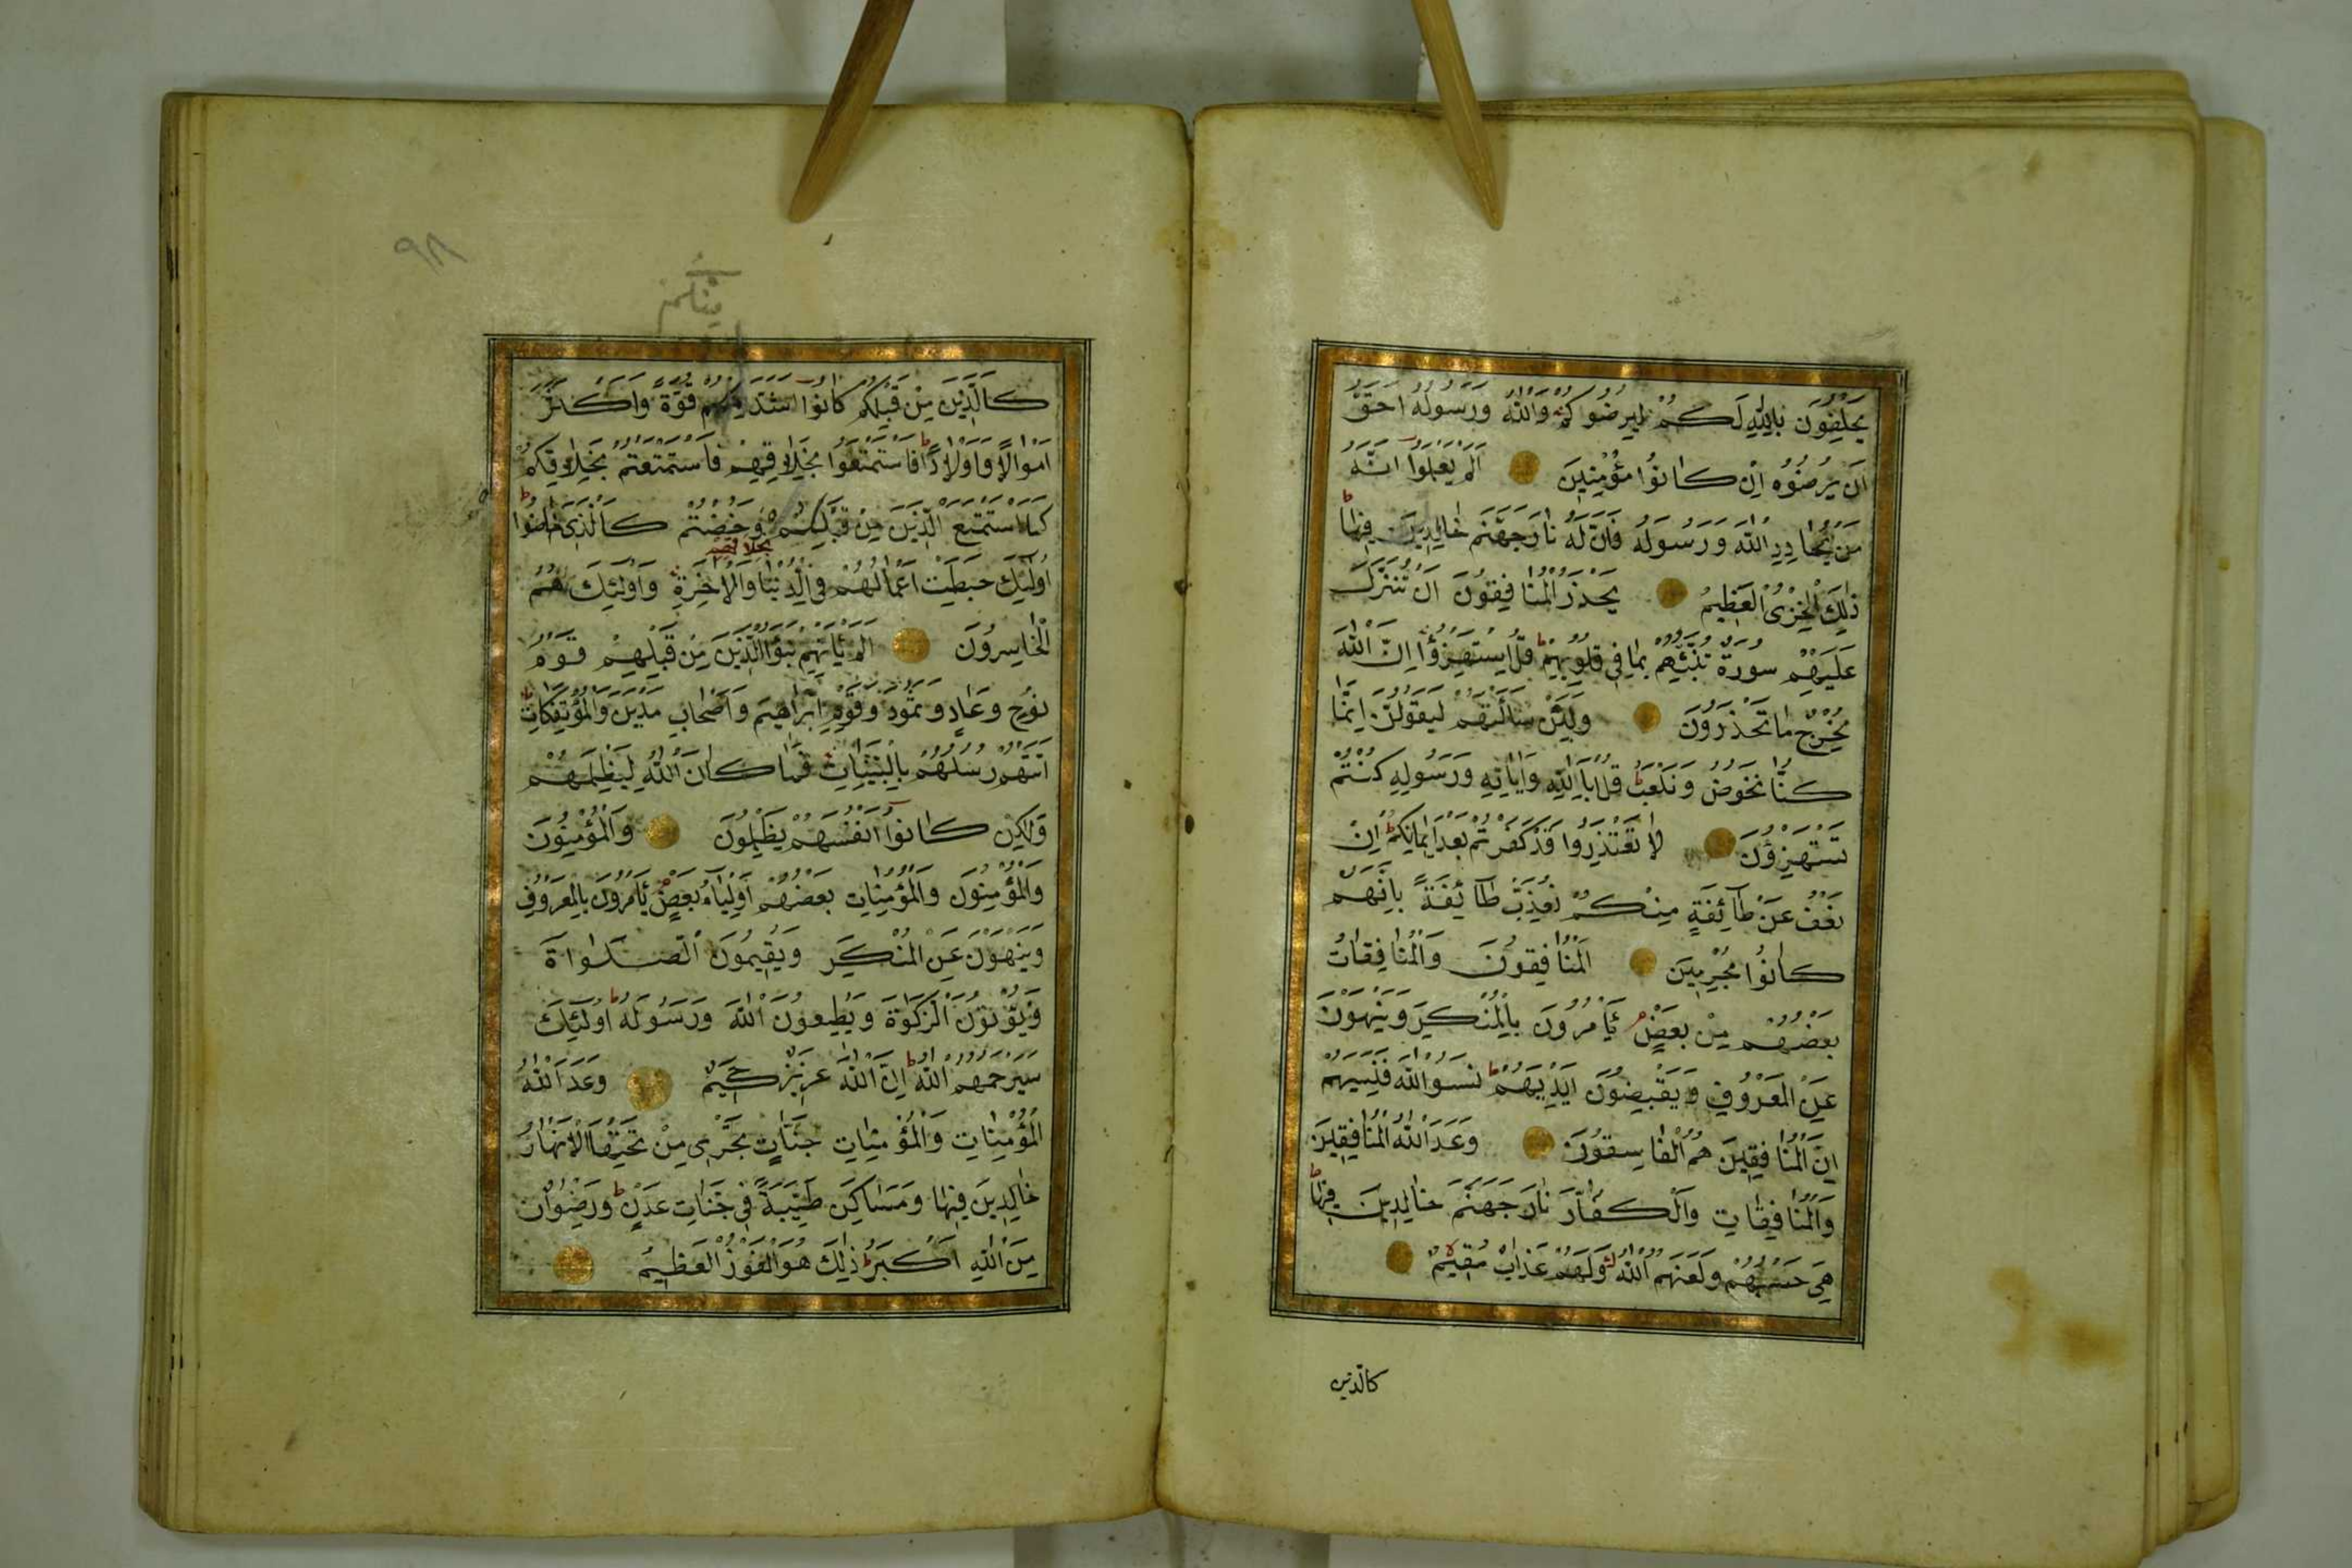 يَحْلِفُونَ بِاللّٰهِ لَكُمْ لِيُرْضُوكُمْ وَاللّٰهُ وَرَسُولُهُ اَحَقُّ
اَنْ يُرْضُوهُ اِنْ كَانُوا مُؤْمِنِينَ اَلَمْ يَعْلَمُوا اَنَّهُ
مَنْ يُحَادِدِ اللّٰهَ وَرَسُولَهُ فَاَنَّ لَهُ نَارَ جَهَنَّمَ خَالِدِينَ فِيهَا ط
ذٰلِكَ الْخِزْىُ الْعَظِيمُ يَحْذَرُ الْمُنَافِقُونَ اَنْ تُنَزَّلَ
عَلَيْهِمْ سُورَةٌ تُنَبِّئُهُمْ بِمَا فِي قُلُوبِهِمْ ط قُلِ اسْتَهْزِؤُا اِنَّ اللّٰهَ
مُخْرِجٌ مَا تَحْذَرُونَ وَلَئِنْ سَاَلْتَهُمْ لَيَقُولُنَّ اِنَّمَا
كُنَّا نَخُوضُ وَنَلْعَبُ ط قُلْ اَبِاللّٰهِ وَاٰيَاتِهِ وَرَسُولِهِ كُنْتُمْ
تَسْتَهْزِؤُنَ لَا تَعْتَذِرُوا قَدْ كَفَرْتُمْ بَعْدَ اِيمَانِكُمْ ط اِنْ
نَعْفُ عَنْ طَائِفَةٍ مِنْكُمْ نُعَذِّبْ طَائِفَةً بِاَنَّهُمْ
كَانُوا مُجْرِمِينَ اَلْمُنَافِقُونَ وَالْمُنَافِقَاتُ
بَعْضُهُمْ مِنْ بَعْضٍ م يَأْمُرُونَ بِالْمُنْكَرِ وَيَنْهَوْنَ
عَنِ الْمَعْرُوفِ وَيَقْبِضُونَ اَيْدِيَهُمْ ط نَسُوا اللّٰهَ فَنَسِيَهُمْ
اِنَّ الْمُنَافِقِينَ هُمُ الْفَاسِقُونَ وَعَدَ اللّٰهُ الْمُنَافِقِينَ
وَالْمُنَافِقَاتِ وَالْكُفَّارَ نَارَ جَهَنَّمَ خَالِدِينَ فِيهَا ط
هِيَ حَسْبُهُمْ وَلَعَنَهُمُ اللّٰهُ وَلَهُمْ عَذَابٌ مُقِيمٌ
كالذين
٩٨
منكم
كَالَّذِينَ مِنْ قَبْلِكُمْ كَانُوا اَشَدَّ مِنْكُمْ قُوَّةً وَاَكْثَرَ
اَمْوَالًا وَاَوْلَادًا ط فَاسْتَمْتَعُوا بِخَلَاقِهِمْ فَاسْتَمْتَعْتُمْ بِخَلَاقِكُمْ
كَمَا اسْتَمْتَعَ الَّذِينَ مِنْ قَبْلِكُمْ وَخُضْتُمْ كَالَّذِي خَاضُوا ط
بخلاقهم
اُولٰئِكَ حَبِطَتْ اَعْمَالُهُمْ فِي الدُّنْيَا وَالْاٰخِرَةِ وَاُولٰئِكَ هُمُ
الْخَاسِرُونَ اَلَمْ يَأْتِهِمْ نَبَؤُا الَّذِينَ مِنْ قَبْلِهِمْ قَوْمِ
نُوحٍ وَعَادٍ وَثَمُودَ وَقَوْمِ اِبْرَاهِيمَ وَاَصْحَابِ مَدْيَنَ وَالْمُؤْتَفِكَاتِ ط
اَتَتْهُمْ رُسُلُهُمْ بِالْبَيِّنَاتِ فَمَا كَانَ اللّٰهُ لِيَظْلِمَهُمْ
وَلٰكِنْ كَانُوا اَنْفُسَهُمْ يَظْلِمُونَ وَالْمُؤْمِنُونَ
وَالْمُؤْمِنُونَ وَالْمُؤْمِنَاتِ بَعْضُهُمْ اَوْلِيَاءُ بَعْضٍ م يَأْمُرُونَ بِالْمَعْرُوفِ
وَيَنْهَوْنَ عَنِ الْمُنْكَرِ وَيُقِيمُونَ الصَّلٰوةَ
وَيُؤْتُونَ الزَّكٰوةَ وَيُطِيعُونَ اللّٰهَ وَرَسُولَهُ ط اُولٰئِكَ
سَيَرْحَمُهُمُ اللّٰهُ ط اِنَّ اللّٰهَ عَزِيزٌ حَكِيمٌ وَعَدَ اللّٰهُ
الْمُؤْمِنِينَاتِ وَالْمُؤْمِنَاتِ جَنَّاتٍ تَجْرِي مِنْ تَحْتِهَا الْاَنْهَارُ
خَالِدِينَ فِيهَا وَمَسَاكِنَ طَيِّبَةً فِي جَنَّاتِ عَدْنٍ ط وَرِضْوَانٌ
مِنَ اللّٰهِ اَكْبَرُ ط ذٰلِكَ هُوَ الْفَوْزُ الْعَظِيمُ